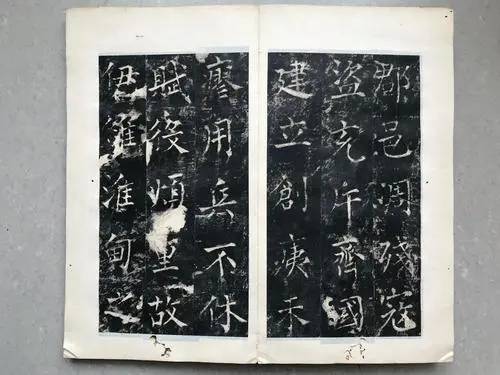 郡邑凋殘寇
盜充斥齊國
建立創痍未
瘳用兵不休
賦役煩重故
伊雒淮甸之